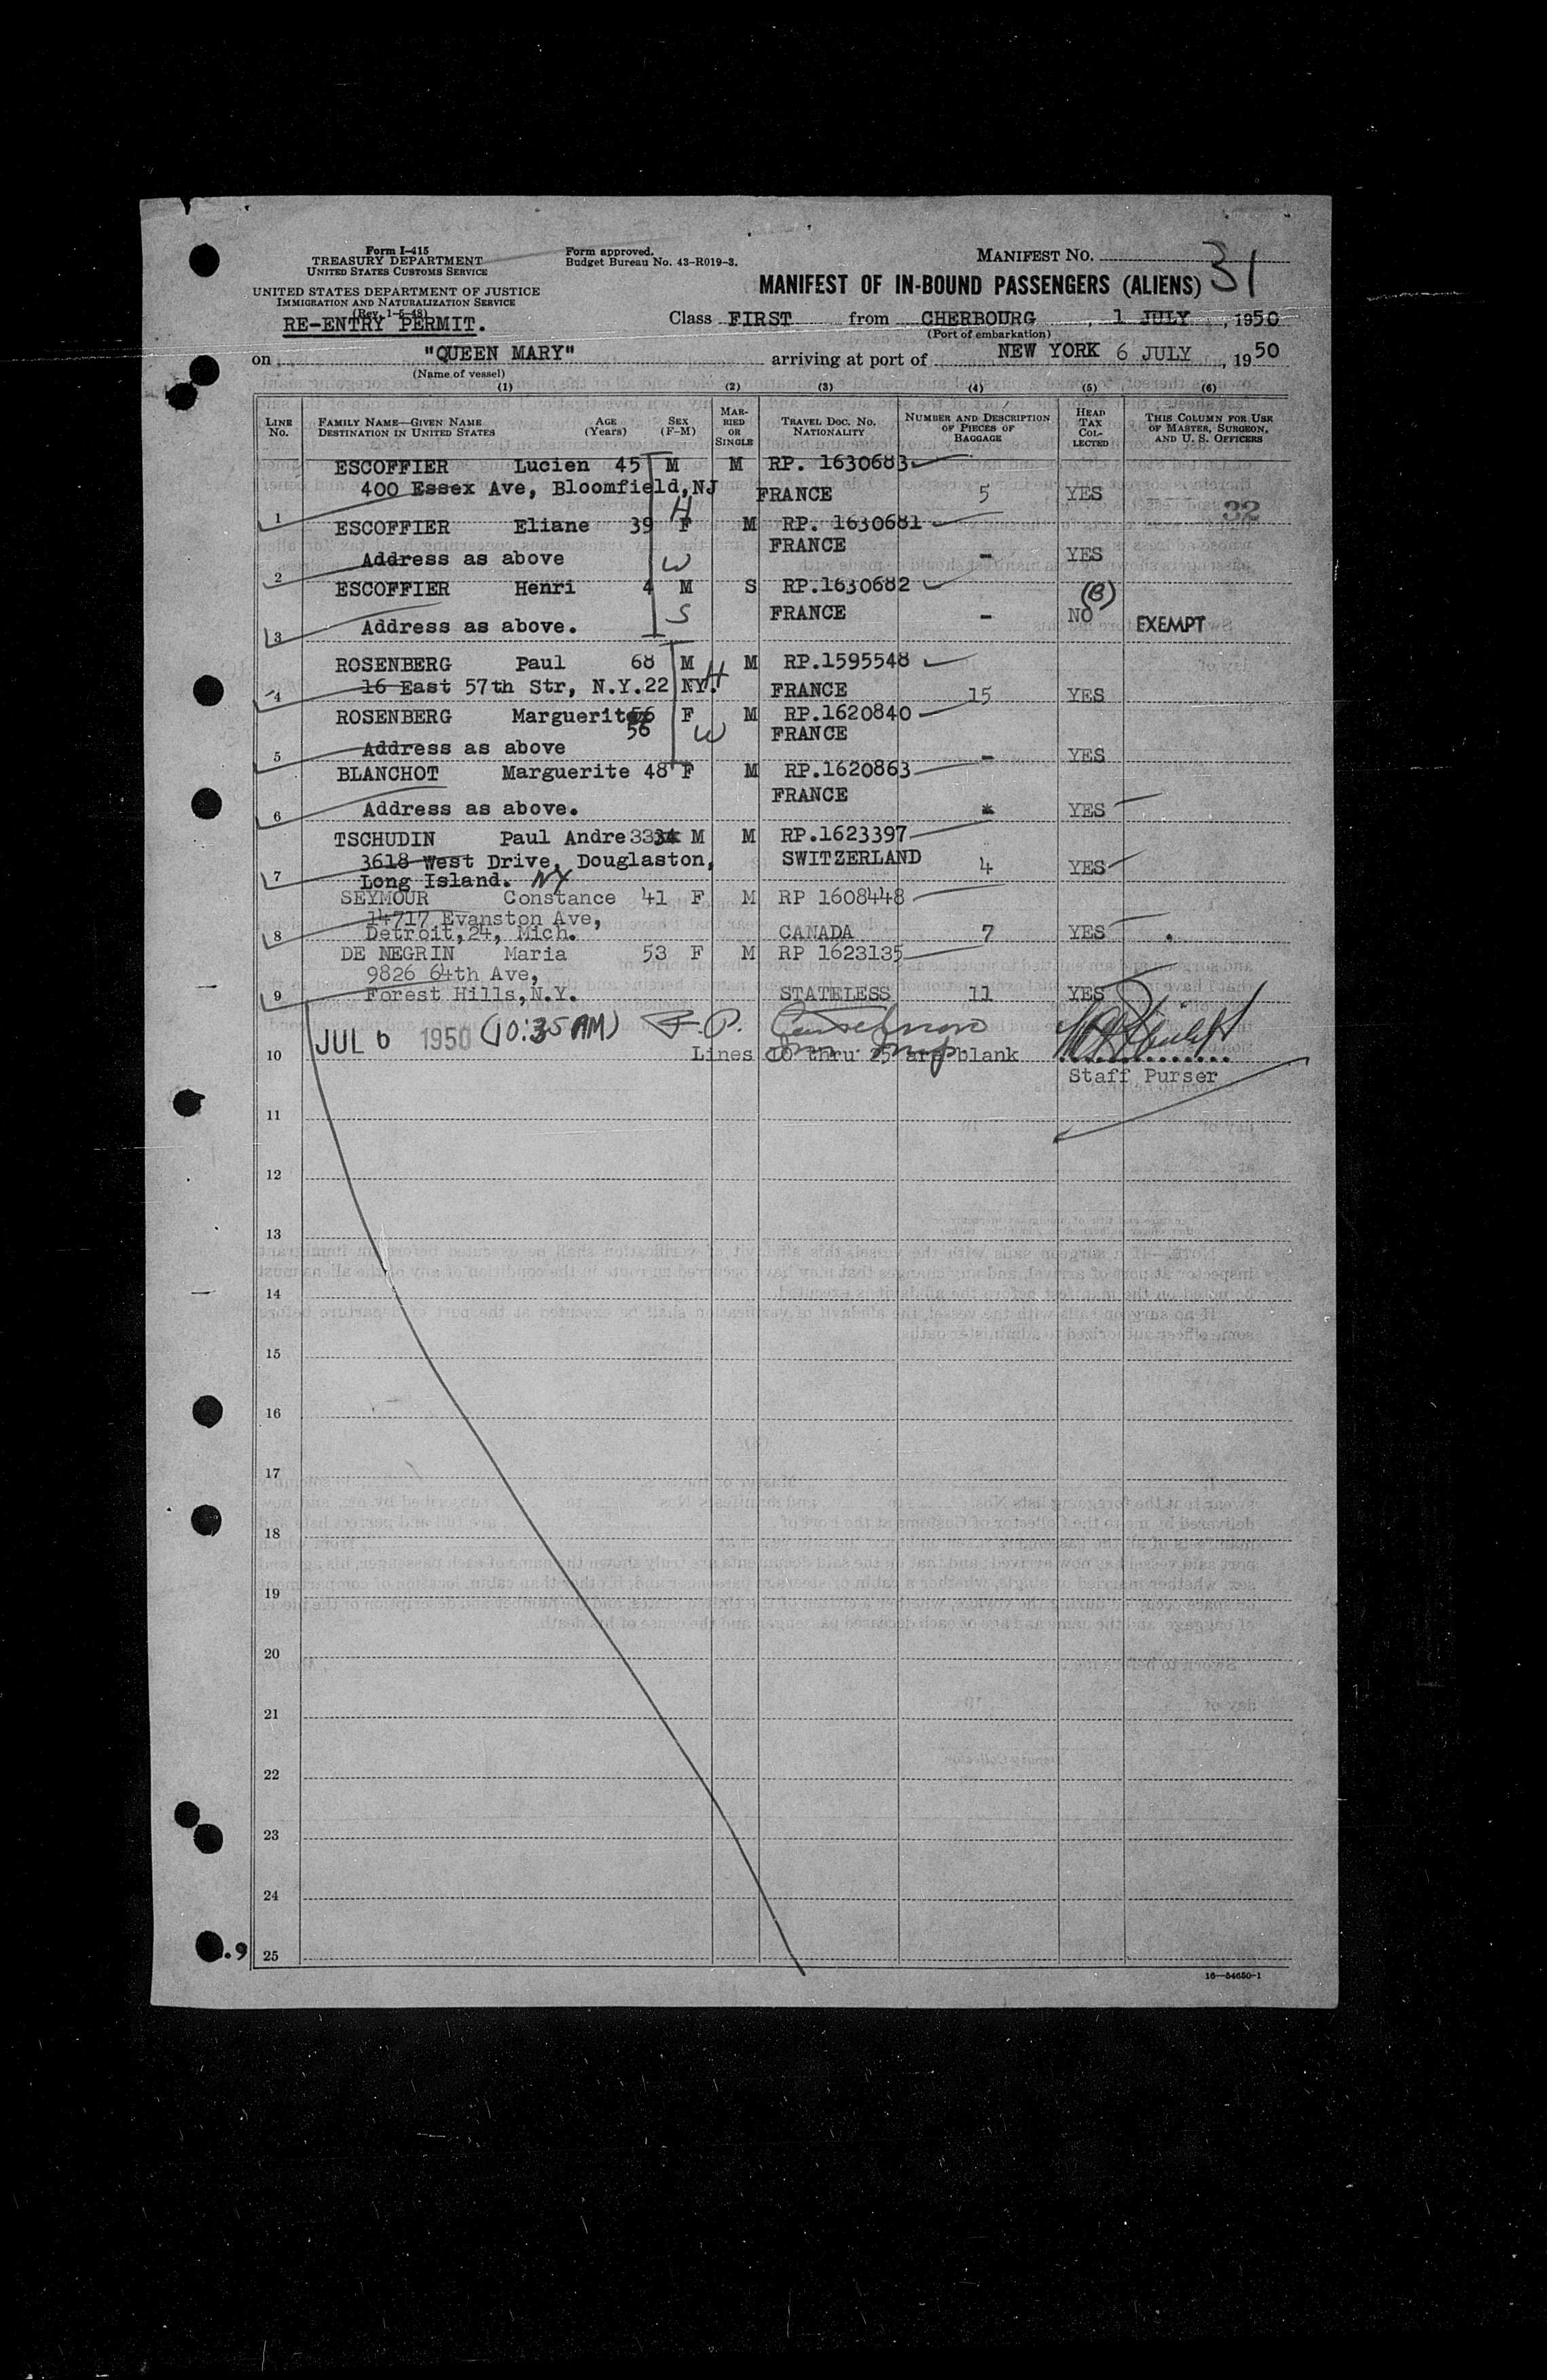 Form I-415
TREASURY DEPARTMENT
UNITED STATES CUSTOMS SERVICE
UNITED STATES DEPARTMENT OF JUSTICE
IMMIGRATION AND NATURALIZATION SERVICE
(Rev. 1-5-48)
RE-ENTRY PERMIT.
Form approved.
Budget Bureau No. 43-R019-3.
MANIFEST NO.
31
MANIFEST OF IN-BOUND PASSENGERS (ALIENS)
Class FIRST from CHERBOURG, 1 JULY, 1950
(Port of embarkation)
on "QUEEN MARY" arriving at port of NEW YORK 6 JULY, 1950
(Name of vessel)
(1) (2) (3) (4) (5) (6)
LINE NO. FAMILY NAME—GIVEN NAME DESTINATION IN UNITED STATES AGE (Years) SEX (F-M) MARRIED OR SINGLE TRAVEL DOC. NO. NATIONALITY NUMBER AND DESCRIPTION OF PIECES OF BAGGAGE HEAD TAX COLLECTED THIS COLUMN FOR USE OF MASTER, SURGEON, AND U. S. OFFICERS
ESCOFFIER Lucien 45 M M RP. 1630683
400 Essex Ave, Bloomfield,NJ FRANCE 5 YES
1 H 32
ESCOFFIER Eliane 39 F M RP. 1630681
FRANCE
2 Address as above W - YES
ESCOFFIER Henri 4 M S RP.1630682 (B)
3 Address as above. S FRANCE - NO EXEMPT
ROSENBERG Paul 68 M M RP.1595548
4 16 East 57th Str, N.Y.22 NY. H FRANCE 15 YES
ROSENBERG Marguerite 56 F M RP.1620840
56 W FRANCE
5 Address as above - YES
BLANCHOT Marguerite 48 F M RP.1620863
FRANCE
6 Address as above. * YES
TSCHUDIN Paul Andre 33 M M RP.1623397
3618 West Drive, Douglaston, SWITZERLAND 4 YES
7 Long Island. NY
SEYMOUR Constance 41 F M RP 1608448
14717 Evanston Ave,
8 Detroit,24, Mich. CANADA 7 YES
DE NEGRIN Maria 53 F M RP 1623135
9826 64th Ave,
9 Forest Hills,N.Y. STATELESS 11 YES
JUL 6 1950 (10:35 AM)
10 Lines 10 thru 25 are blank
Staff Purser
11
12
13
14
15
16
17
18
19
20
21
22
23
24
.9 25
16—54650-1